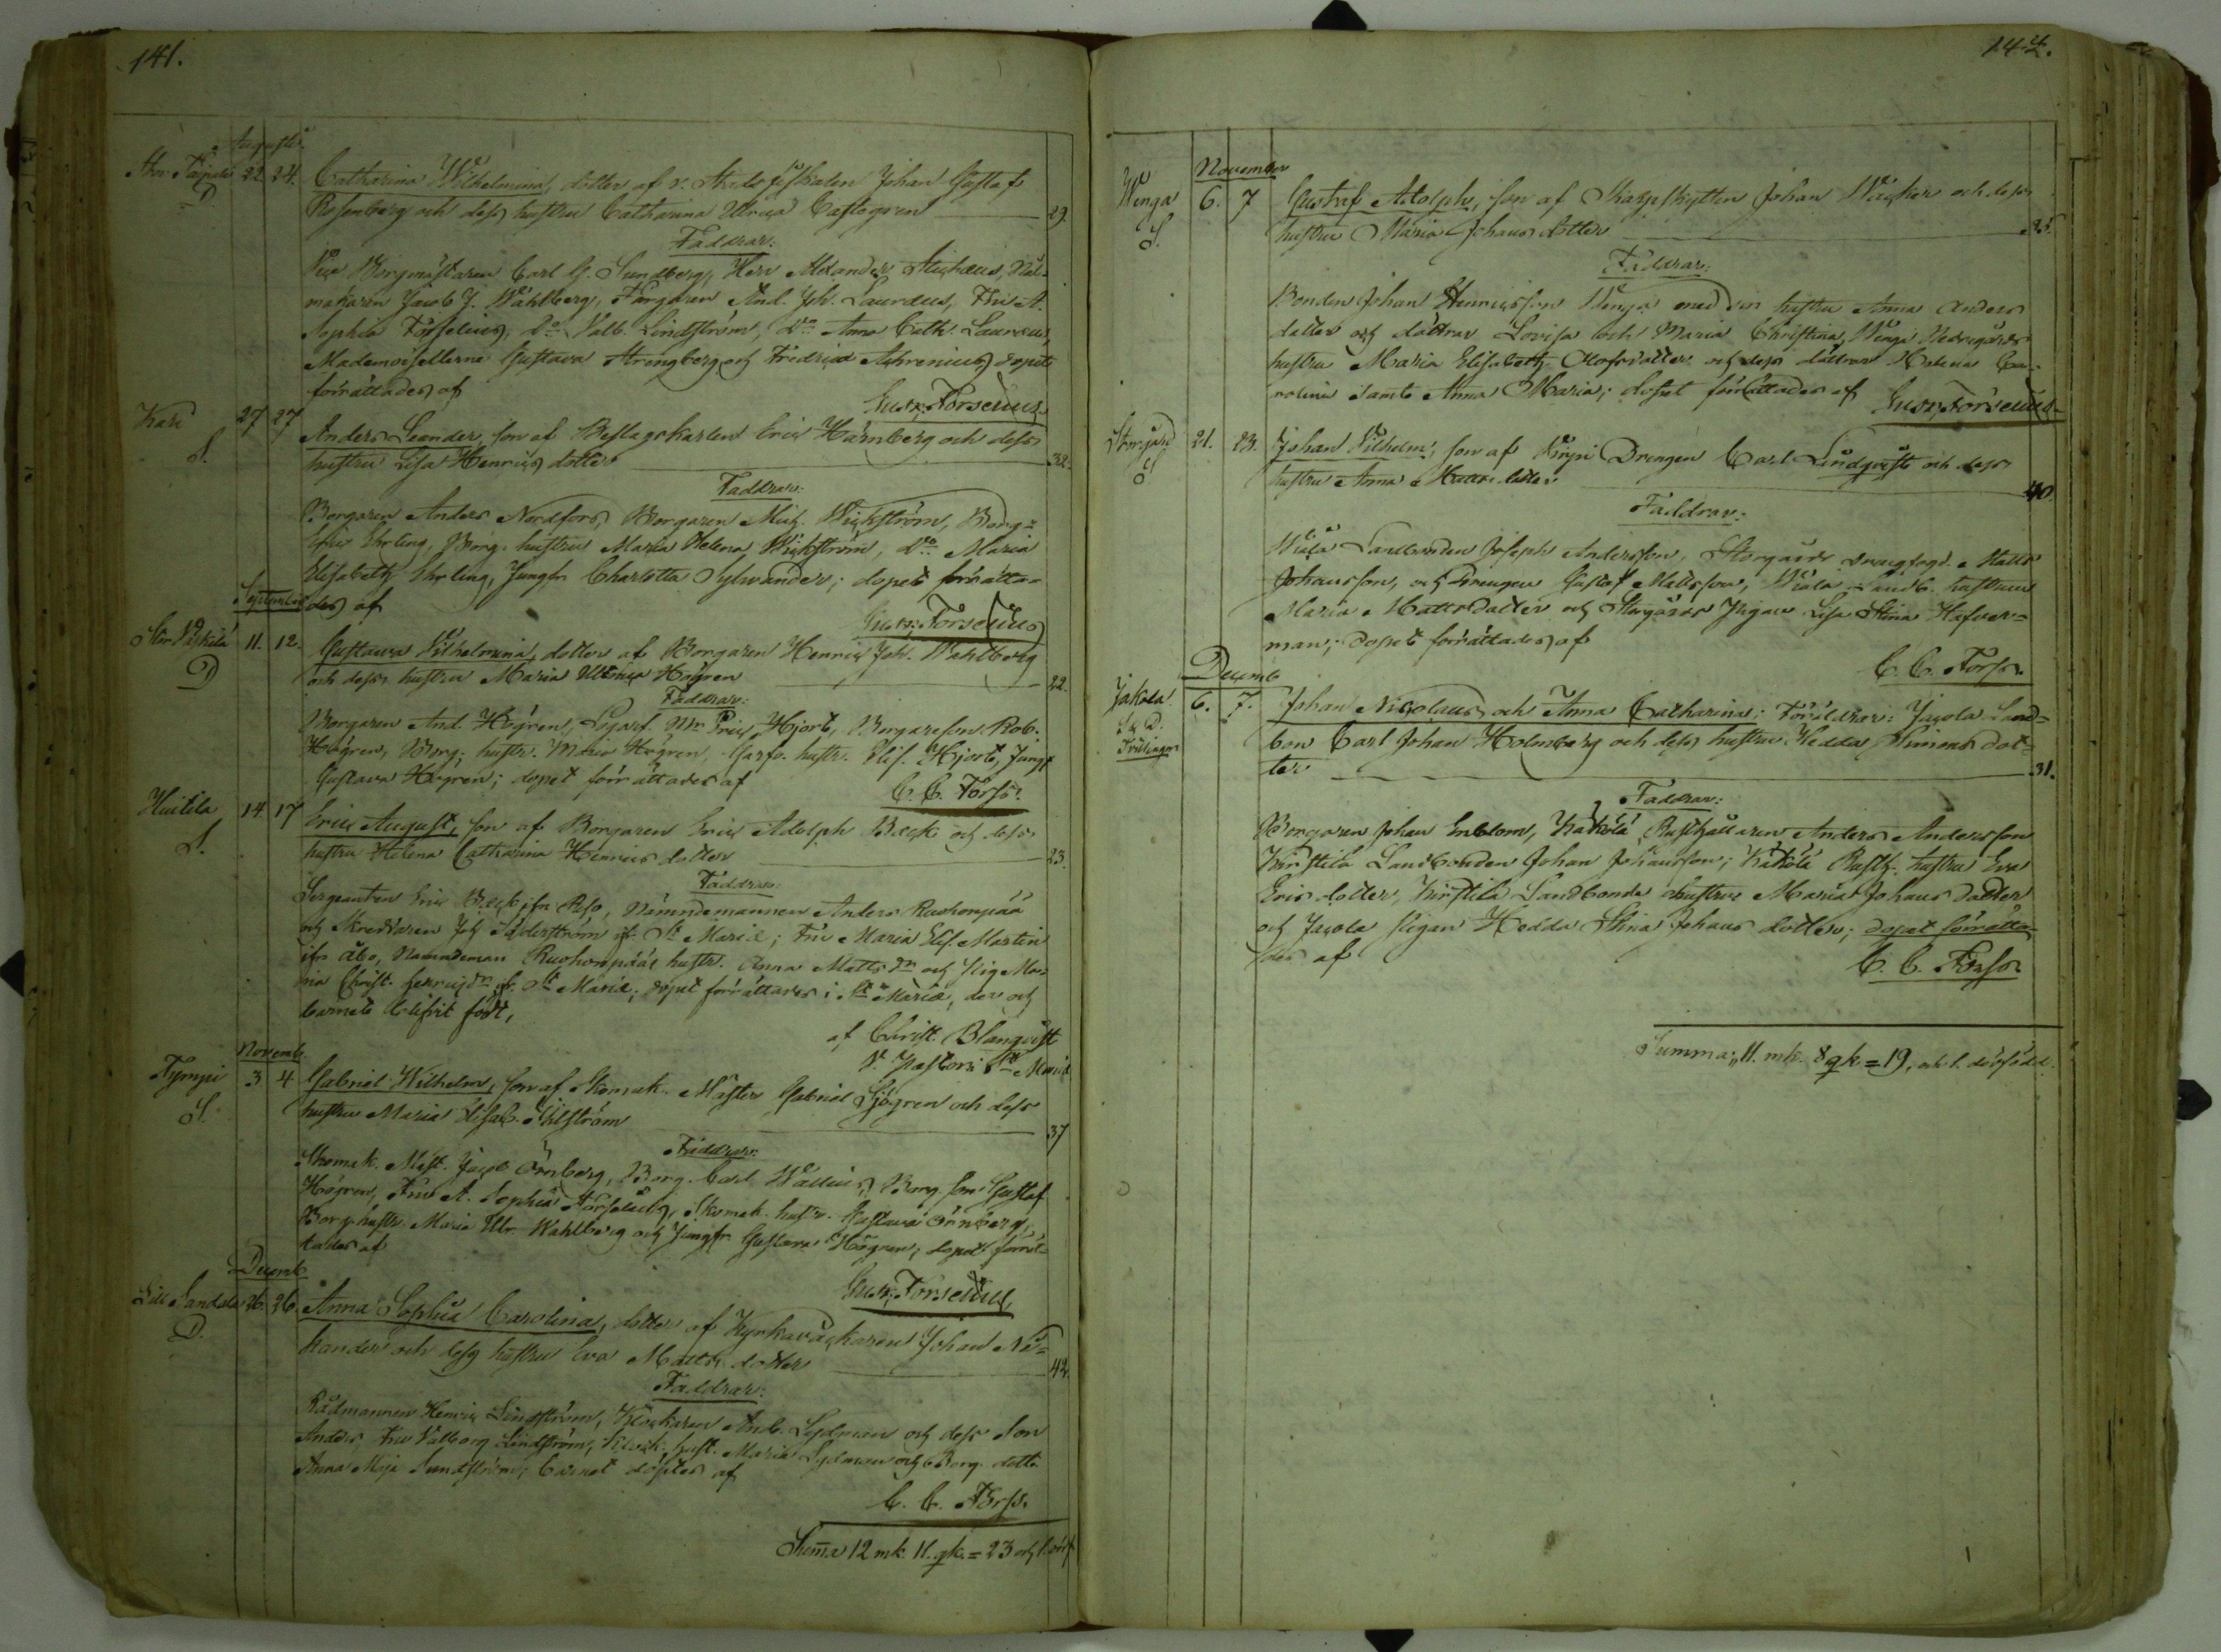 141.
Augusti
Stor Tärpilä 22. 24. Catharina Wilhelmina, dotter af v. Stadsfiskalen Johan Gustaf
D Rosenberg och dess hustru Catharina Ulrica Castegren 29.
Faddrar:
Vice Borgmästaren Carl G. Sundberg, Herr Alexander Michæus, Nål-
makaren Jacob J. Wahlberg, Färgaren And. Joh. Lauræus, Fru A.
Sophia Forselius, d:o Valb. Lindström, d:o Anna Cath. Lauræus,
Mademoisellerna Gustava Strengberg och Fredrica Achrenius, dopet
förrättades af
Gust: Forselius
Kari 27 27 Anders Leander, son af Beslagskarlen Eric Härnberg och dess
S. hustru Lisa Henrics dotter 32.
Faddrar:
Borgaren Anders Nordfors, Borgaren Mich. Wickström, Borg:
Eric Ehrling, Borg. hustru Maria Helena Wickström, d:o Maria
Elisabeth Ehrling, Jungfr. Charlotta Sylvander; dopet förrätta-
des af
Gust: Forselius
September
Stor Päskilä 11. 12. Gustava Vilhelmina, dotter af Borgaren Henric Joh. Wahlberg
D och dess hustru Maria Ulrica Högren 22.
Faddrar:
Borgaren And. Högren, Garf. Mr Eric Hjort, Borgareson Rob.
Högren, Borg: hustr. Maria Högren, Garfv. hustr. Elis. Hjort, Jungf
Gustava Högren; dopet förrättades af
C. C. Forss.
Huitila 14. 17 Eric August, son af Borgaren Eric Adolph Beck och dess
S. hustru Helena Catharina Henrics dotter 23.
Faddrar:
Sergeanten Eric Beck ifr. Reso, Nämndemannen Anders Ruohonpää
och Skräddaren Joh Söderström ifr St Mariæ; Fru Maria Elis. Martin
ifr Åbo, Nämndeman Ruohonpääs hustr. Anna Matts dr och Pig Ma-
ria Christ. Henricsdr ifr St Mariæ; dopet förrättades i St Mariæ, der och
barnet blifvit födt,
af Christ. Blanqvist
V. Pastor i St Mariæ
Novemb.
Tympi 3. 4. Gabriel Wilhelm, son af Skomak. Mäster Gabriel Sjögren och dess
S. hustru Maria Elisab. Kihlström 37
Faddrar:
Skomak. Mäst. Jacob Örnberg, Borg. Carl Wallius, Borg. son Gustaf
Högren, Fru A. Sophia Forselius, Skomak. hustr. Gustava Örnberg,
Borg. hustr. Maria Ulr. Wahlberg och Jungfr Gustava Högren; dopet förrät-
tades af
Gust: Forselius
Decemb
Lill Sandala 26. 26. Anna Sophia Carolina, dotter af Kyrkaväktaren Johan Ni-
D. kander och dess hustru Eva Matts dotter 42.
Faddrar:
Rådmannen Henric Lindström, Klockaren And. Lydman och dess Son
Anders, Fru Valborg Lindström, Klock. hust. Maria Lydman och Borg. dottr
Anna Maja Sundström; barnet döptes af
C. C. Forss.
Summa 12 mk. 11. qk. = 23 och 1. döf
142.
November
Wenga 6. 7 Gustaf Adolph, son af Skarpskytten Johan Wacker och dess
S. hustru Maria Johans dotter 25.
Faddrar:
Bonden Johan Henricsson Wenga med sin hustru Anna Anders
dotter och döttrar Lovisa och Maria Christina, Wenga Nedregårds
hustru Maria Elisabeth Olofsdotter och dess döttrar Helena Ca-
rolina samt Anna Maria; dopet förrättades af
Gust: Forselius
Storgård 21. 23. Johan Vilhelm, son af Drengen Carl Lindqvist och dess
S hustru Anna Matts dotter 40.
Faddrar:
Wiala Landbonden Joseph Andersson, Storgårds drengfogd. Matts
Johansson, och Drengen Gustaf Mattsson, Wiala Landb. hustru
Maria Mattsdotter och Storgårds Pigan Lisa Stina Hafver-
man; dopet förrättades af
C. C. Forss
Decemb
Jakola 6. 7. Johan Nicolaus och Anna Catharina; Föräldrar: Jacola Land-
S & D. bon Carl Johan Holmberg och dess hustru Hedda Simons dot-
Trillingar ter 31.
Faddrar:
Borgaren Johan Enblom, Käkölä Rusthållaren Anders Andersson
Kirstila Landbonden Johan Johansson; Käkölä Rusth. hustru Eva
Erics dotter, Kirstila Landbonde hustru Maria Johans dotter
och Jacola Pigan Hedda Stina Johans dotter; dopet förrätta-
des af
C. C. Forss
Summa: 11. mk. 8 qk = 19, och 1. dödfödd.